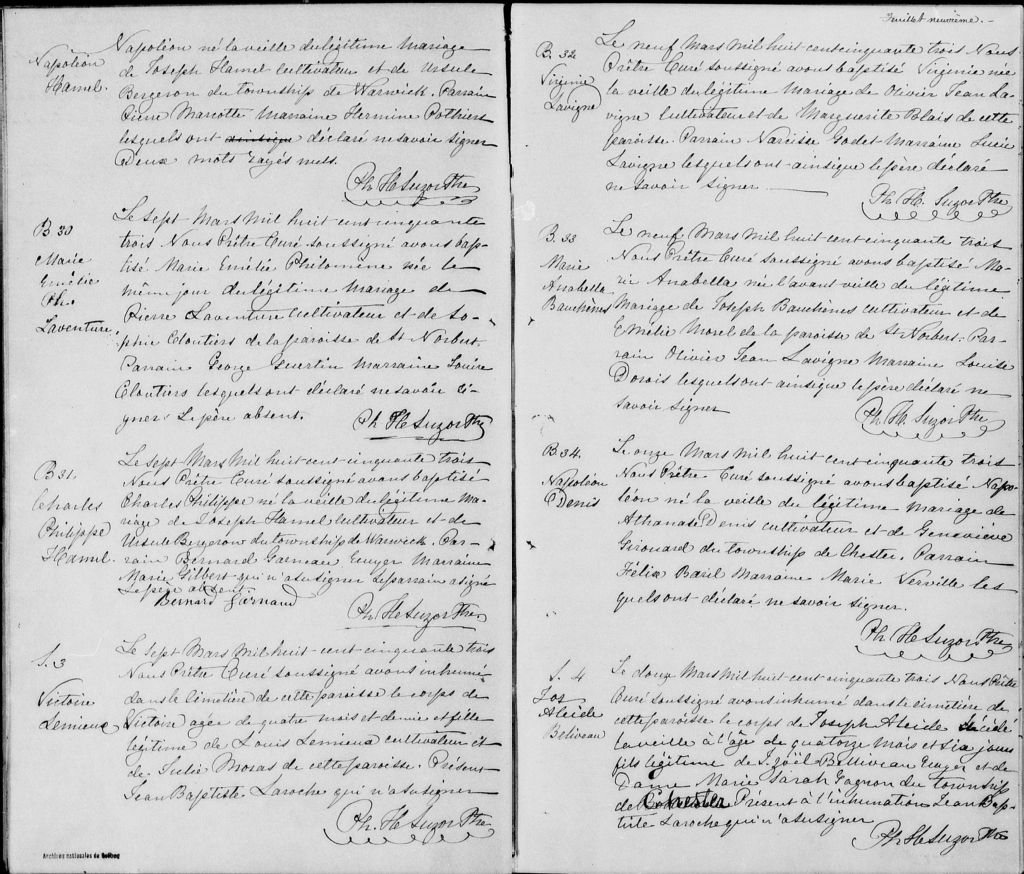 Napoléon
Hamel.
Napoléon né la veille du légitime mariage
de Joseph Hamel cultivateur et de Ursule
Bergeron du township de Warwick. Parrain
Pierre Marcotte Marraine Hermine Pothier
lesquels ont déclaré ne savoir signer
Deux mots rayés nuls.
Ph. H. Suzor Ptre
B 30
Marie
Emélie
Phi.
Laventure.
Le sept Mars Mil huit cent cinquante
trois Nous Prêtre Curé soussigné avons bap-
tisé Marie Emélie Philomène née le
même jour du légitime mariage de
Pierre Laventure cultivateur et de So-
phie Cloutiers de la paroisse de St Norbert.
Parrain George Guertin Marraine Louise
Cloutiers lesquels ont déclaré ne savoir si-
gner. Le père absent.
Ph H Suzor Ptre
B 31.
Charles
Philippe
Hamel
Le sept Mars Mil huit cent cinquante trois
Nous Prêtre Curé soussigné avons baptisé
Charles Philippe né la veille du légitime Ma-
riage de Joseph Hamel Cultivateur et de
Ursule Bergeron du township de Warwick. Par-
rain Bernard Garneau Ecuyer Marraine
Marie Gilbert qui n'a su signer Le parrain a signé
Le père absent.
Bernard Garnaud
Ph. H. Suzor Ptre
S. 3
Victoire
Lemieux
Le sept Mars Mil huit cent cinquante trois
Nous Prêtre Curé soussigné avons inhumé
dans le cimetière de cette paroisse le corps de
Victoire agée de quatre mois et demie et fille
légitime de Louis Lemieux cultivateur et
de Julie Moras de cette paroisse. Présent
Jean Baptiste Laroche qui n'a su signer
Ph. H. Suzor Ptre
Archives nationales du Québec
Feuillet neuvième. -
B. 32
Virginie
Lavigne
Le neuf Mars Mil huit cent cinquante trois Nous
Prêtre Curé soussigné avons baptisé Virginie née
la veille du légitime Mariage de Olivier Jean La-
vigne Cultivateur et de Marguerite Blais de cette
paroisse. Parrain Narcisse Godet Marraine Lucie
Lavigne lesquels ont ainsi que le père déclaré
ne savoir signer
Ph. H. Suzor Ptre
B. 33
Marie
Anabella
Bauchènes
Le neuf Mars Mil huit cent cinquante trois
Nous Prêtre Curé soussigné avons baptisé Ma-
rie Anabella née l'avant veille du légitime
Mariage de Joseph Bauchènes cultivateur et de
Emélie Morel de la paroisse de St Norbert. Par-
rain Olivier Jean Lavigne Marraine Louise
Dorois lesquels ont ainsi que le père déclaré ne
savoir signer
Ph H. Suzor Ptre
B 34.
Napoléon
Denis
Le onze Mars Mil huit cent cinquante trois
Nous Prêtre Curé soussigné avons baptisé Napo-
léon né la veille du légitime mariage de
Athanase Denis cultivateur et de Geneviève
Girouard du township de Chester. Parrain
Félix Baril Marraine Marie Verville les
quels ont déclaré ne savoir signer.
Ph. H. Suzor Ptre
S. 4
Jos
Alcide
Beliveau
Le douze Mars Mil huit cent cinquante trois Nous Prêtre
Curé soussigné avons inhumé dans le cimetière de
cette paroisse le corps de Joseph Alcide décédé
la veille à l'âge de quatorze mois et six jours
fils légitime de J. Joël Belliveau Ecuyer et de
Dame Marie Sarah Gagnon du township
de Chester Présent à l'inhumation Jean Bap-
tiste Laroche qui n'a su signer
Ph H Suzor Ptre